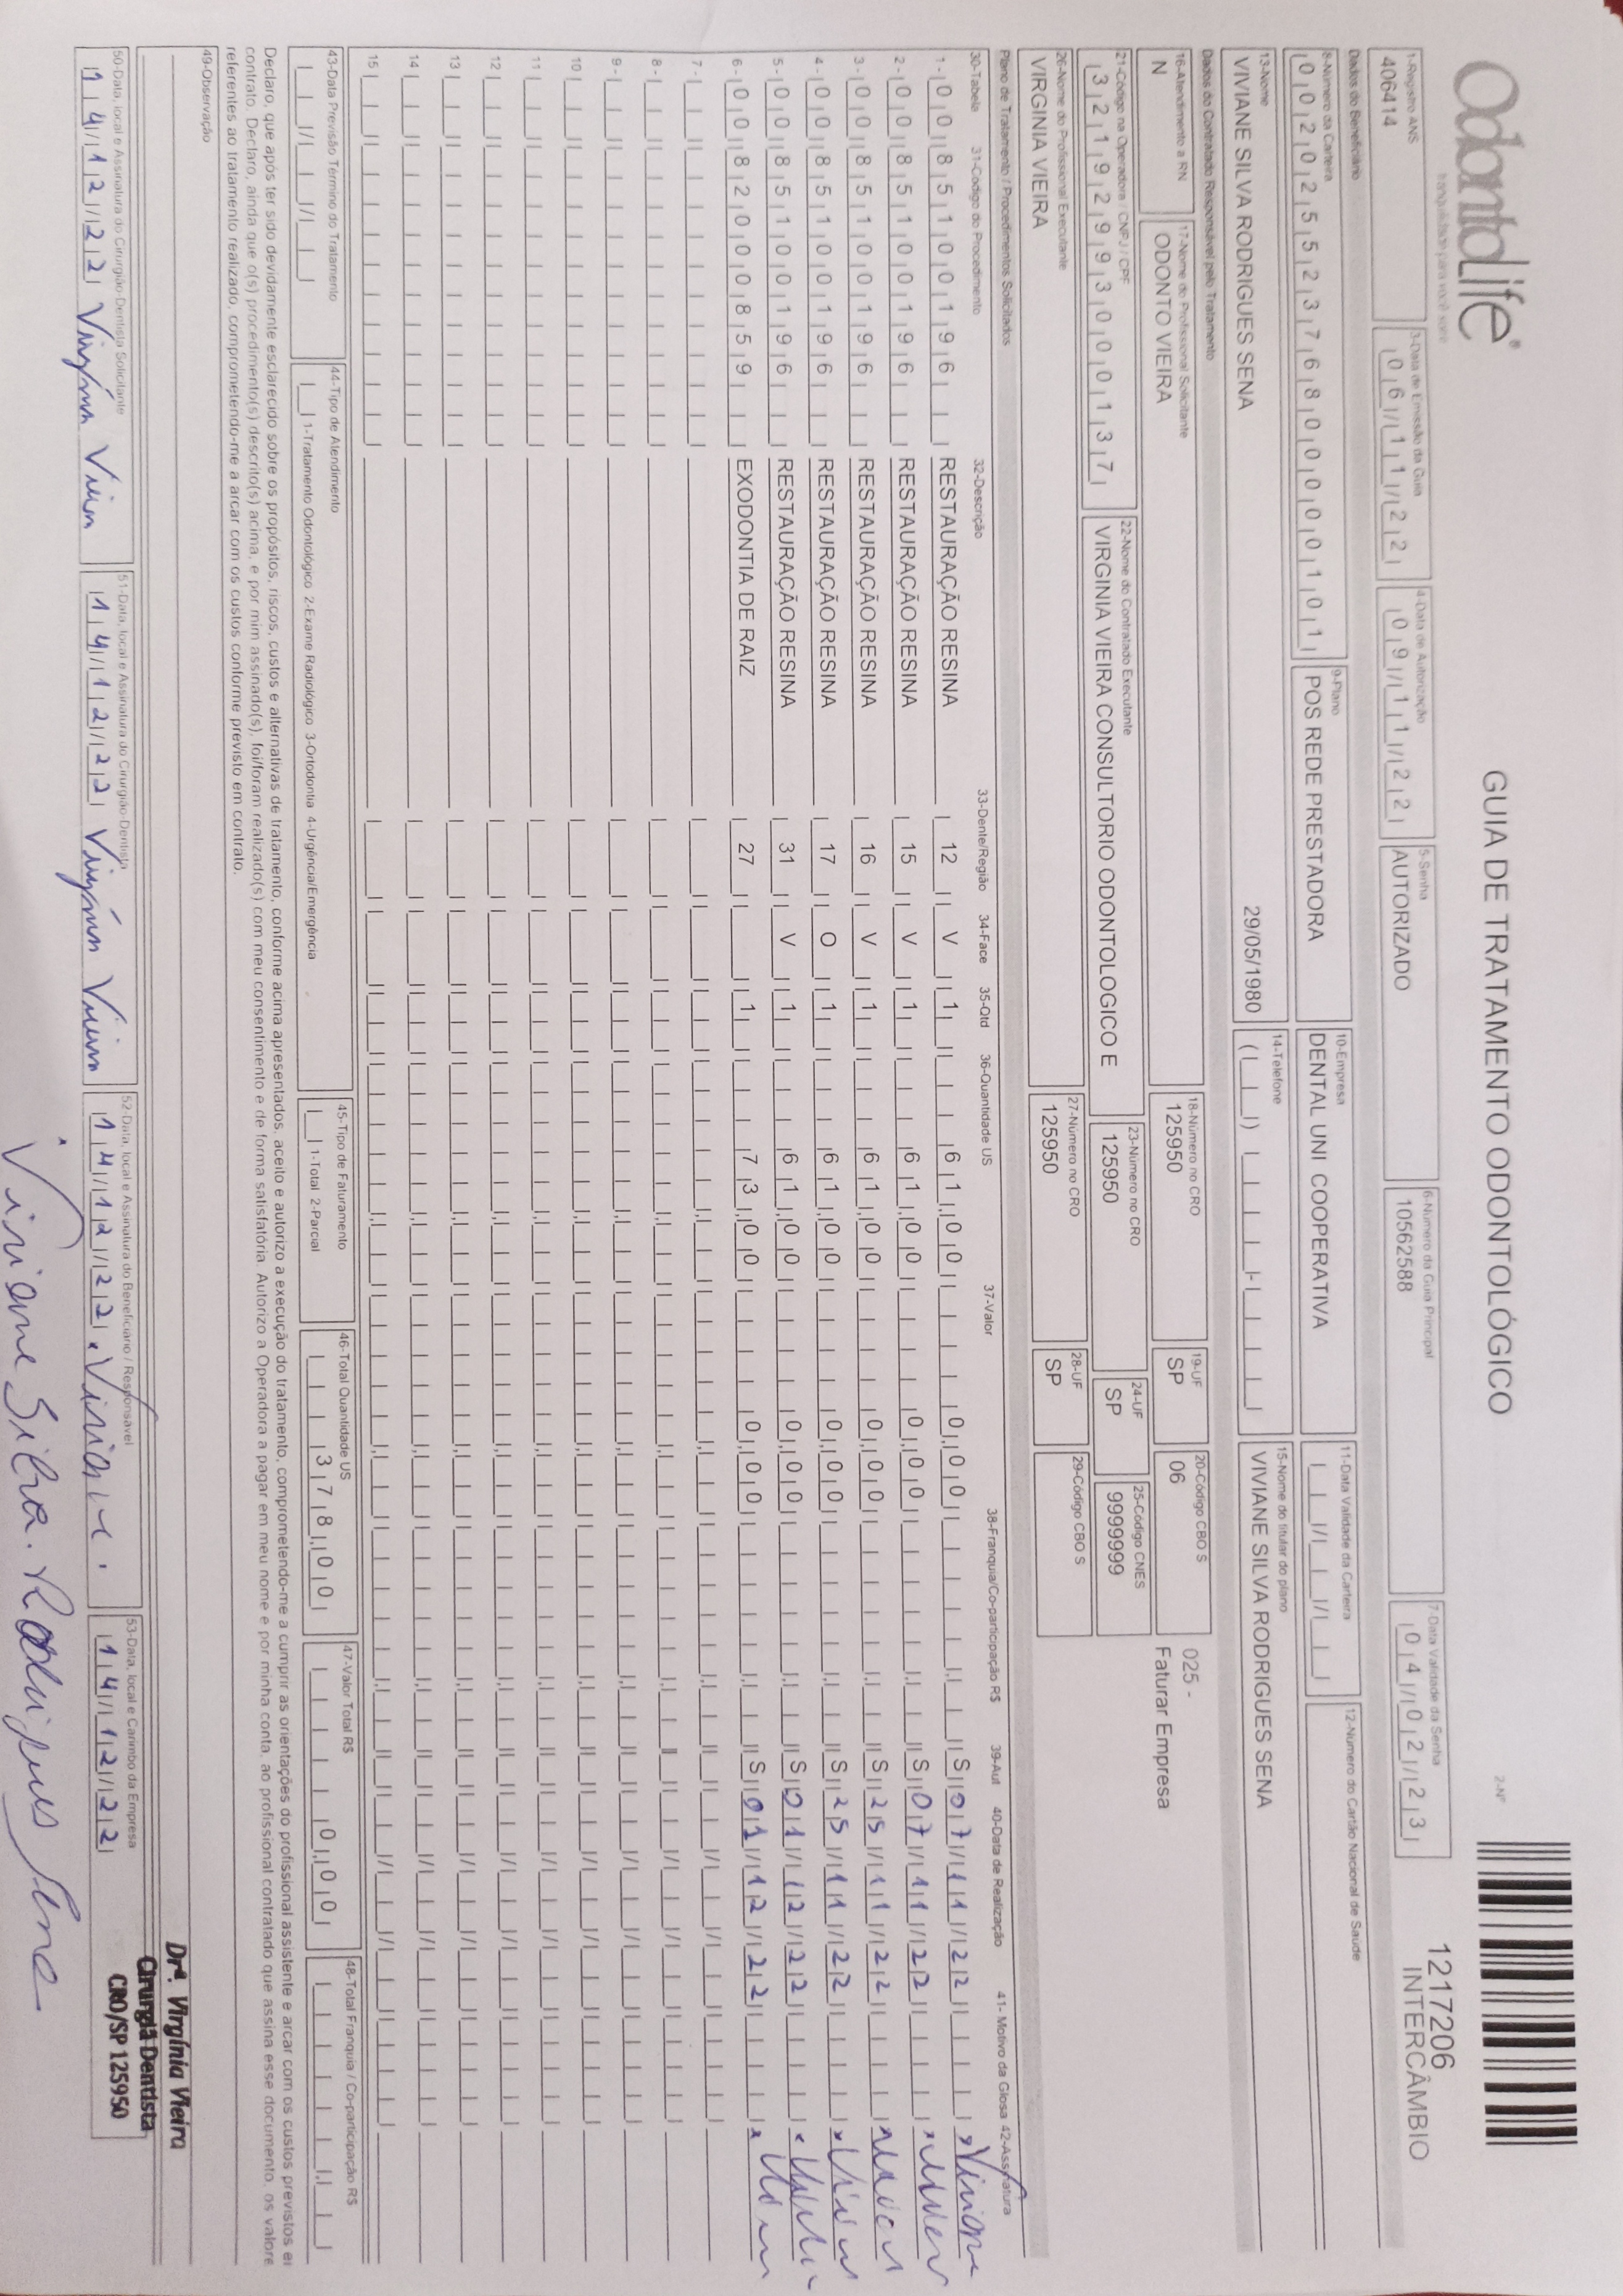 OdontoLife®
tranquilidade para você sorrir
GUIA DE TRATAMENTO ODONTOLÓGICO
2-Nº
1217206
INTERCÂMBIO
1-Registro ANS
406414
3-Data de Emissão da Guia
06/11/22
4-Data de Autorização
09/11/22
5-Senha
AUTORIZADO
6-Número da Guia Principal
10562588
7-Data Validade da Senha
04/02/23
Dados do Beneficiário
8-Número da Carteira
00202552376800000101
9-Plano
POS REDE PRESTADORA
10-Empresa
DENTAL UNI COOPERATIVA
11-Data Validade da Carteira
12-Número do Cartão Nacional de Saúde
13-Nome
VIVIANE SILVA RODRIGUES SENA 29/05/1980
14-Telefone
15-Nome do titular do plano
VIVIANE SILVA RODRIGUES SENA
Dados do Contratado Responsável pelo Tratamento
16-Atendimento a RN
N
17-Nome do Profissional Solicitante
ODONTO VIEIRA
18-Número no CRO
125950
19-UF
SP
20-Código CBO S
06
025 -
Faturar Empresa
21-Código na Operadora / CNPJ / CPF
32192993000137
22-Nome do Contratado Executante
VIRGINIA VIEIRA CONSULTORIO ODONTOLOGICO E
23-Número no CRO
125950
24-UF
SP
25-Código CNES
9999999
26-Nome do Profissional Executante
VIRGINIA VIEIRA
27-Número no CRO
125950
28-UF
SP
29-Código CBO S
Plano de Tratamento / Procedimentos Solicitados
30-Tabela 31-Código do Procedimento 32-Descrição 33-Dente/Região 34-Face 35-Qtd 36-Quantidade US 37-Valor 38-Franquia/Co-participação R$ 39-Aut 40-Data de Realização 41- Motivo da Glosa 42-Assinatura
1- 00 85100196 RESTAURAÇÃO RESINA 12 V 1 61,00 0,00 S 07/11/22 Viviane
2- 00 85100196 RESTAURAÇÃO RESINA 15 V 1 61,00 0,00 S 07/11/22
3- 00 85100196 RESTAURAÇÃO RESINA 16 V 1 61,00 0,00 S 25/11/22
4- 00 85100196 RESTAURAÇÃO RESINA 17 O 1 61,00 0,00 S 25/11/22
5- 00 85100196 RESTAURAÇÃO RESINA 31 V 1 61,00 0,00 S 01/12/22
6- 00 82000859 EXODONTIA DE RAIZ 27 1 73,00 0,00 S 01/12/22
7-
8-
9-
10
11
12
13
14
15
43-Data Previsão Término do Tratamento
44-Tipo de Atendimento
1-Tratamento Odontológico 2-Exame Radiológico 3-Ortodontia 4-Urgência/Emergência
45-Tipo de Faturamento
1-Total 2-Parcial
46-Total Quantidade US
378,00
47-Valor Total R$
0,00
48-Total Franquia / Co-participação R$
Declaro, que após ter sido devidamente esclarecido sobre os propósitos, riscos, custos e alternativas de tratamento, conforme acima apresentados, aceito e autorizo a execução do tratamento, comprometendo-me a cumprir as orientações do profissional assistente e arcar com os custos previstos e
contrato. Declaro, ainda que o(s) procedimento(s) descrito(s) acima, e por mim assinado(s), foi/foram realizado(s) com meu consentimento e de forma satisfatória. Autorizo a Operadora a pagar em meu nome e por minha conta, ao profissional contratado que assina esse documento, os valore
referentes ao tratamento realizado, comprometendo-me a arcar com os custos conforme previsto em contrato.
49-Observação
Drª. Virgínia Vieira
Cirurgiã Dentista
CRO/SP 125950
50-Data, local e Assinatura do Cirurgião-Dentista Solicitante
14/12/22 Virgínia Vieira
51-Data, local e Assinatura do Cirurgião-Dentista
14/12/22 Virgínia Vieira
52-Data, local e Assinatura do Beneficiário / Responsável
14/12/22
53-Data, local e Carimbo da Empresa
14/12/22
Viviane Silva Rodrigues Sena